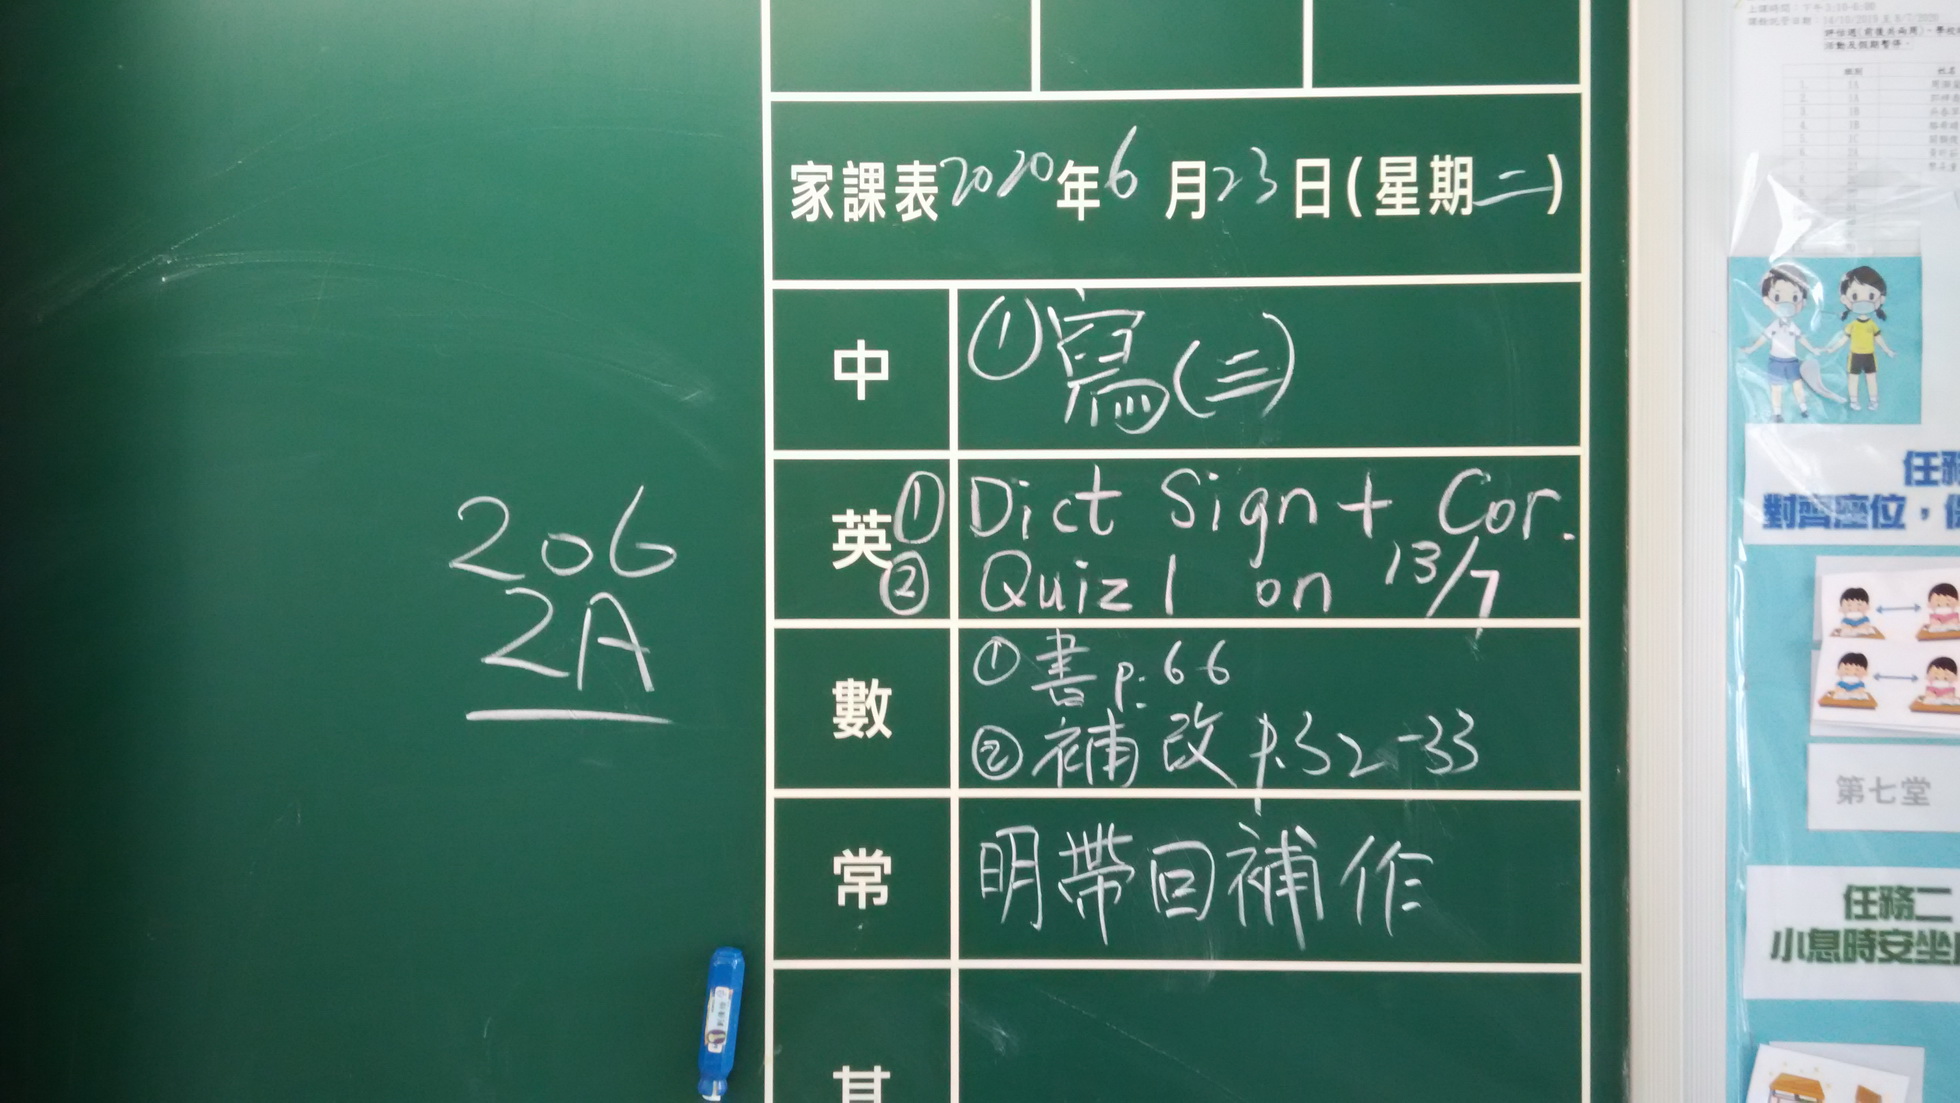 206
2A
家課表2020年6月23日(星期二)
中
①寫(三)
英
①Dict Sign + Cor.
②Quiz 1 on 13/7
數
①書p.66
②補改p.32-33
常
明帶回補作
其
任務
對齊座位，
第七堂
任務二
小息時安坐